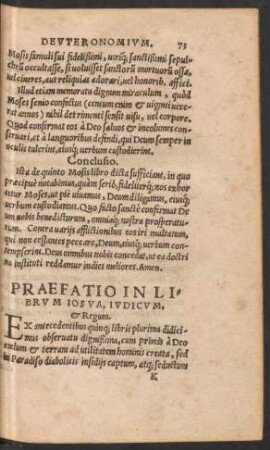 DEVTERONOMIVM. 73
Mosis famuli sui fidelissimi, uiriq; sanctissimi sepul-
chrũ occultasse, si uoluisset sanctorũ mortuorũ ossa,
uel cineres, aut reliquias adorari, uel honorib. affici.
Illud etiam memoratu dignum miraculum, quòd
Moses senio confectus (centum enim & uiginti uixe-
rat annos) nihil detrimenti sensit uisu, uel corpore.
Quod confirmat eos à Deo saluos & incolumes con-
seruari, et à languoribus defendi, qui Deum semper in
oculis tulerint, eiusq; uerbum custodierint.
Conclusio.
Ista de quinto Mosis libro dicta sufficiant, in quo
præcipuè notabimus, quàm seriò, fideliterq; nos exhor
tetur Moses, ut piè uiuamus, Deum diligamus, eiusq;
uerbum custodiamus. Quo facto sanctè confirmat De
um nobis benedicturum, omniaq; nostra prosperatu-
rum. Contra uarijs afflictionibus eos iri mulctatum,
qui non cessantes peccare, Deum, eiusq; uerbum con-
tempserint. Deus omnibus nobis concedat, ut ea doctri
na instituti reddamur indies meliores. Amen.
PRAEFATIO IN LI-
BRVM IOSVA, IVDICVM,
& Regum.
EX antecedentibus quinq; libris plurima didici-
mus obseruatu dignissima, cum primis à Deo
cœlum & terram ad utilitatem hominis creata, sed
in Paradiso diabolicis insidijs captum, atq; seductum
K